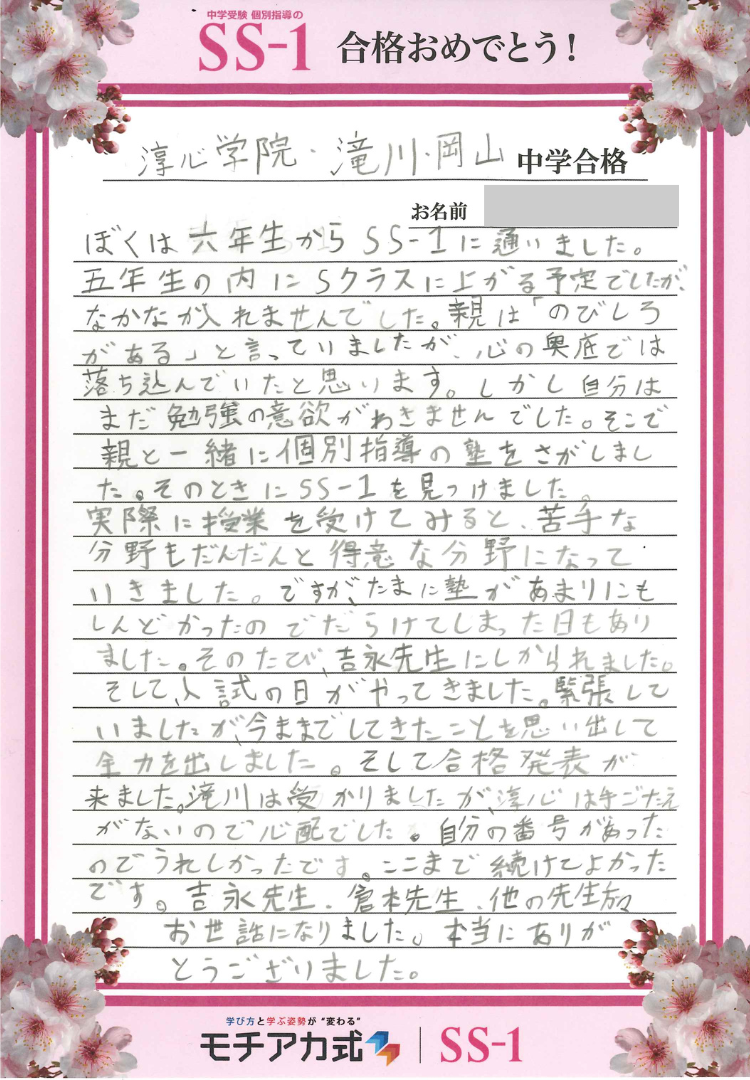 中学受験 個別指導の
SS-1 合格おめでとう!
淳心学院・滝川・岡山 中学合格
お名前
ぼくは六年生からSS-1に通いました。
五年生の内にSクラスに上がる予定でしたが、
なかなか入れませんでした。親は「のびしろ
がある」と言っていましたが、心の奥底では
落ち込んでいたと思います。しかし自分は
まだ勉強の意欲がわきませんでした。そこで
親と一緒に個別指導の塾をさがしまし
た。そのときにSS-1を見つけました。
実際に授業を受けてみると、苦手な
分野もだんだんと得意な分野になって
いきました。ですが、たまに塾があまりにも
しんどかったのでだらけてしまった日もあり
ました。そのたび、吉永先生にしかられました。
そして、入試の日がやってきました。緊張して
いましたが、今までしてきたことを思い出して
全力を出しました。そして合格発表が
来ました。滝川は受かりましたが、淳心は手ごたえ
がないので心配でした。自分の番号があった
のでうれしかったです。ここまで続けてよかった
です。吉永先生、倉本先生、他の先生方々
お世話になりました。本当にありが
とうございました。
学び方と学ぶ姿勢が"変わる"
モチアカ式 SS-1